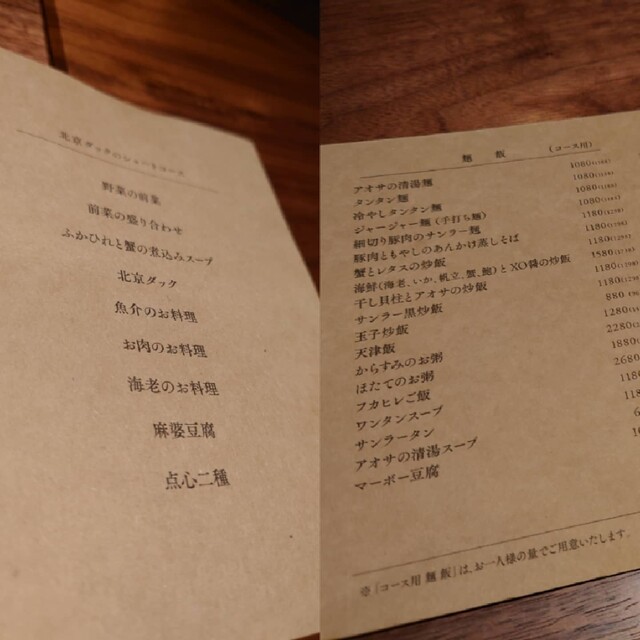 北京ダックのショートコース
野菜の前菜
前菜の盛り合わせ
ふかひれと蟹の煮込みスープ
北京ダック
魚介のお料理
お肉のお料理
海老のお料理
麻婆豆腐
点心二種
麺 飯 (コース用)
アオサの清湯麺 1080
タンタン麺 1080
冷やしタンタン麺 1080
ジャージャー麺(手打ち麺) 1180
細切り豚肉のサンラー麺 1180
豚肉ともやしのあんかけ蒸しそば 1180
蟹とレタスの炒飯 1180
海鮮(海老、いか、帆立、蟹、鮑)とXO醤の炒飯 1580
干し貝柱とアオサの炒飯 1180
サンラー黒炒飯 1180
玉子炒飯 880
天津飯 1280
からすみのお粥 2280
ほたてのお粥 1880
フカヒレご飯 2680
ワンタンスープ
サンラータン
アオサの清湯スープ
マーボー豆腐
※「コース用 麺 飯」は、お一人様の量でご用意いたします。